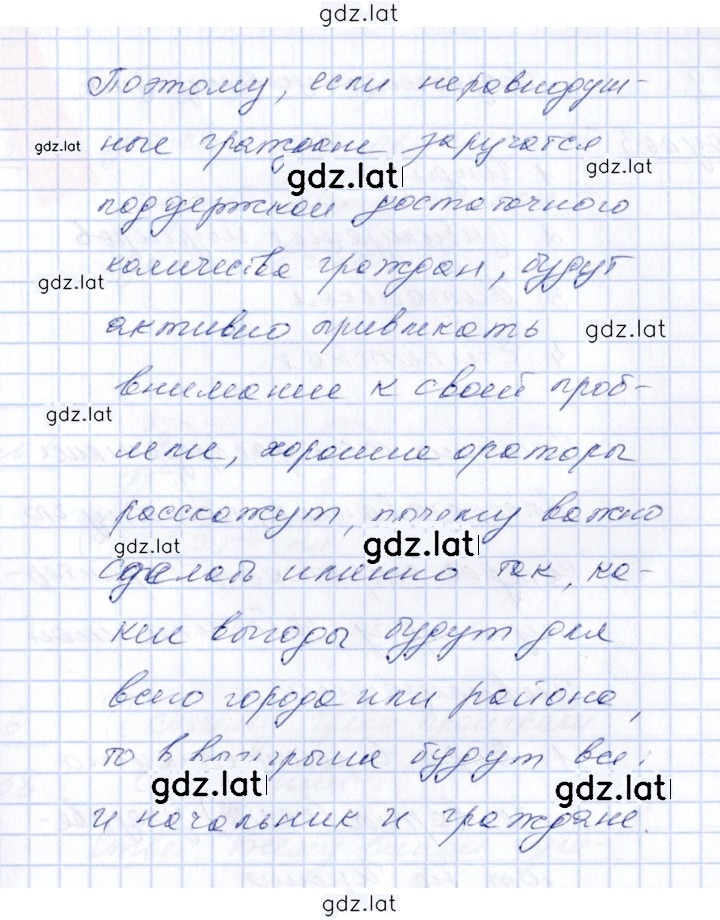 gdz.lat
Поэтому, если неравнодуш-
gdz.lat
ные граждане заручатся
gdz.lat
gdz.lat
поддержкой достаточного
количества граждан, будут
gdz.lat
активно привлекать
gdz.lat
внимание к своей проб-
gdz.lat
леме, хорошие ораторы
расскажут, почему важно
gdz.lat
gdz.lat
сделать именно так, ка-
кие выгоды будут для
всего города или района,
то в выигрыше будут все:
gdz.lat
gdz.lat
и начальник и граждане.
gdz.lat